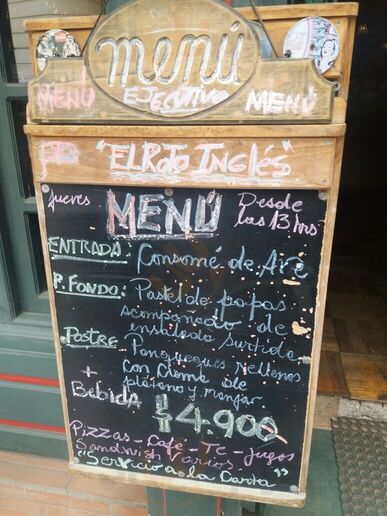 menú
MENÚ EJECUTIVO MENÚ
"EL Rato Inglés"
Jueves MENÚ Desde las 13 hrs
ENTRADA: Consomé de Ave
P. FONDO: Pastel de papas
acompañado de
ensalada surtida
Postre: Panqueques Rellenos
con Crema de
plátano y manjar
+
Bebida $4.900
Pizzas - Café - Te - Jugos
Sandwish Varios.
"Servicio a la Carta"